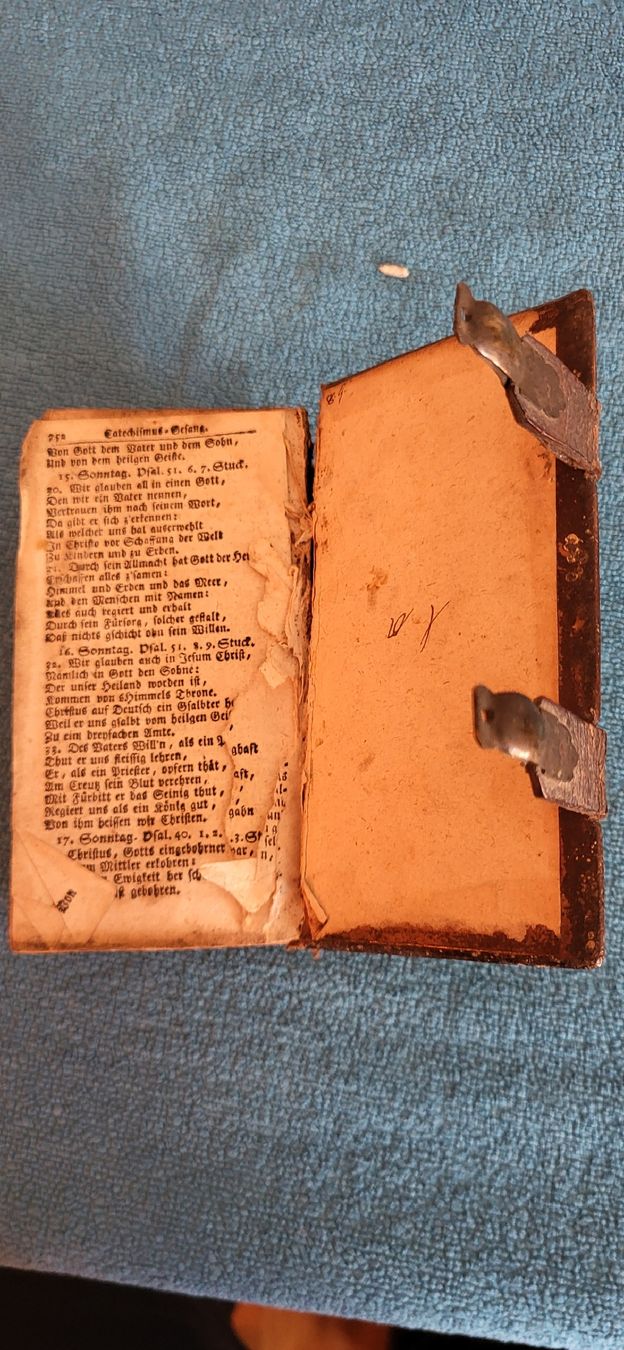 752 Catechismus-Gesang.
Von Gott dem Vater und dem Sohn,
Und von dem heilgen Geiste.
15. Sonntag. Psal. 51. 6. 7. Stuck.
30. Wir glauben all in einen Gott,
Den wir ein Vater nennen,
Vertrauen ihm nach seinem Wort,
Da gibt er sich z'erkennen:
Als welcher uns hat auserwehlt
In Christo vor Schaffung der Welt
Zu Kindern und zu Erben.
31. Durch sein Allmacht hat Gott der Her
Erschaffen alles z'samen:
Himmel und Erden und das Meer,
Und den Menschen mit Namen:
Alles auch regiert und erhalt
Durch sein Fürsorg, solcher gestalt,
Daß nichts gschicht ohn sein Willen.
16. Sonntag. Psal. 51. 8. 9. Stuck.
32. Wir glauben auch in Jesum Christ,
Nämlich in Gott den Sohne:
Der unser Heiland worden ist,
Kommen von sHimmels Throne.
Christus auf Deutsch ein Gsalbter
Weil er uns gsalbt vom heilgen Gei
Zu eim dreyfachen Amte.
33. Des Vaters Will'n, als ein P
Thut er uns fleissig lehren,
Er, als ein Priester, opfern thät,
Am Creutz sein Blut verehren,
Mit Fürbitt er das Seinig thut,
Regiert uns als ein König gut,
Von ihm heissen wir Christen.
17. Sonntag. Psal. 40. 1. 2.
Christus, Gotts eingebohrner
Mittler erkohren:
Ewigkeit her
ist gebohren.
Von